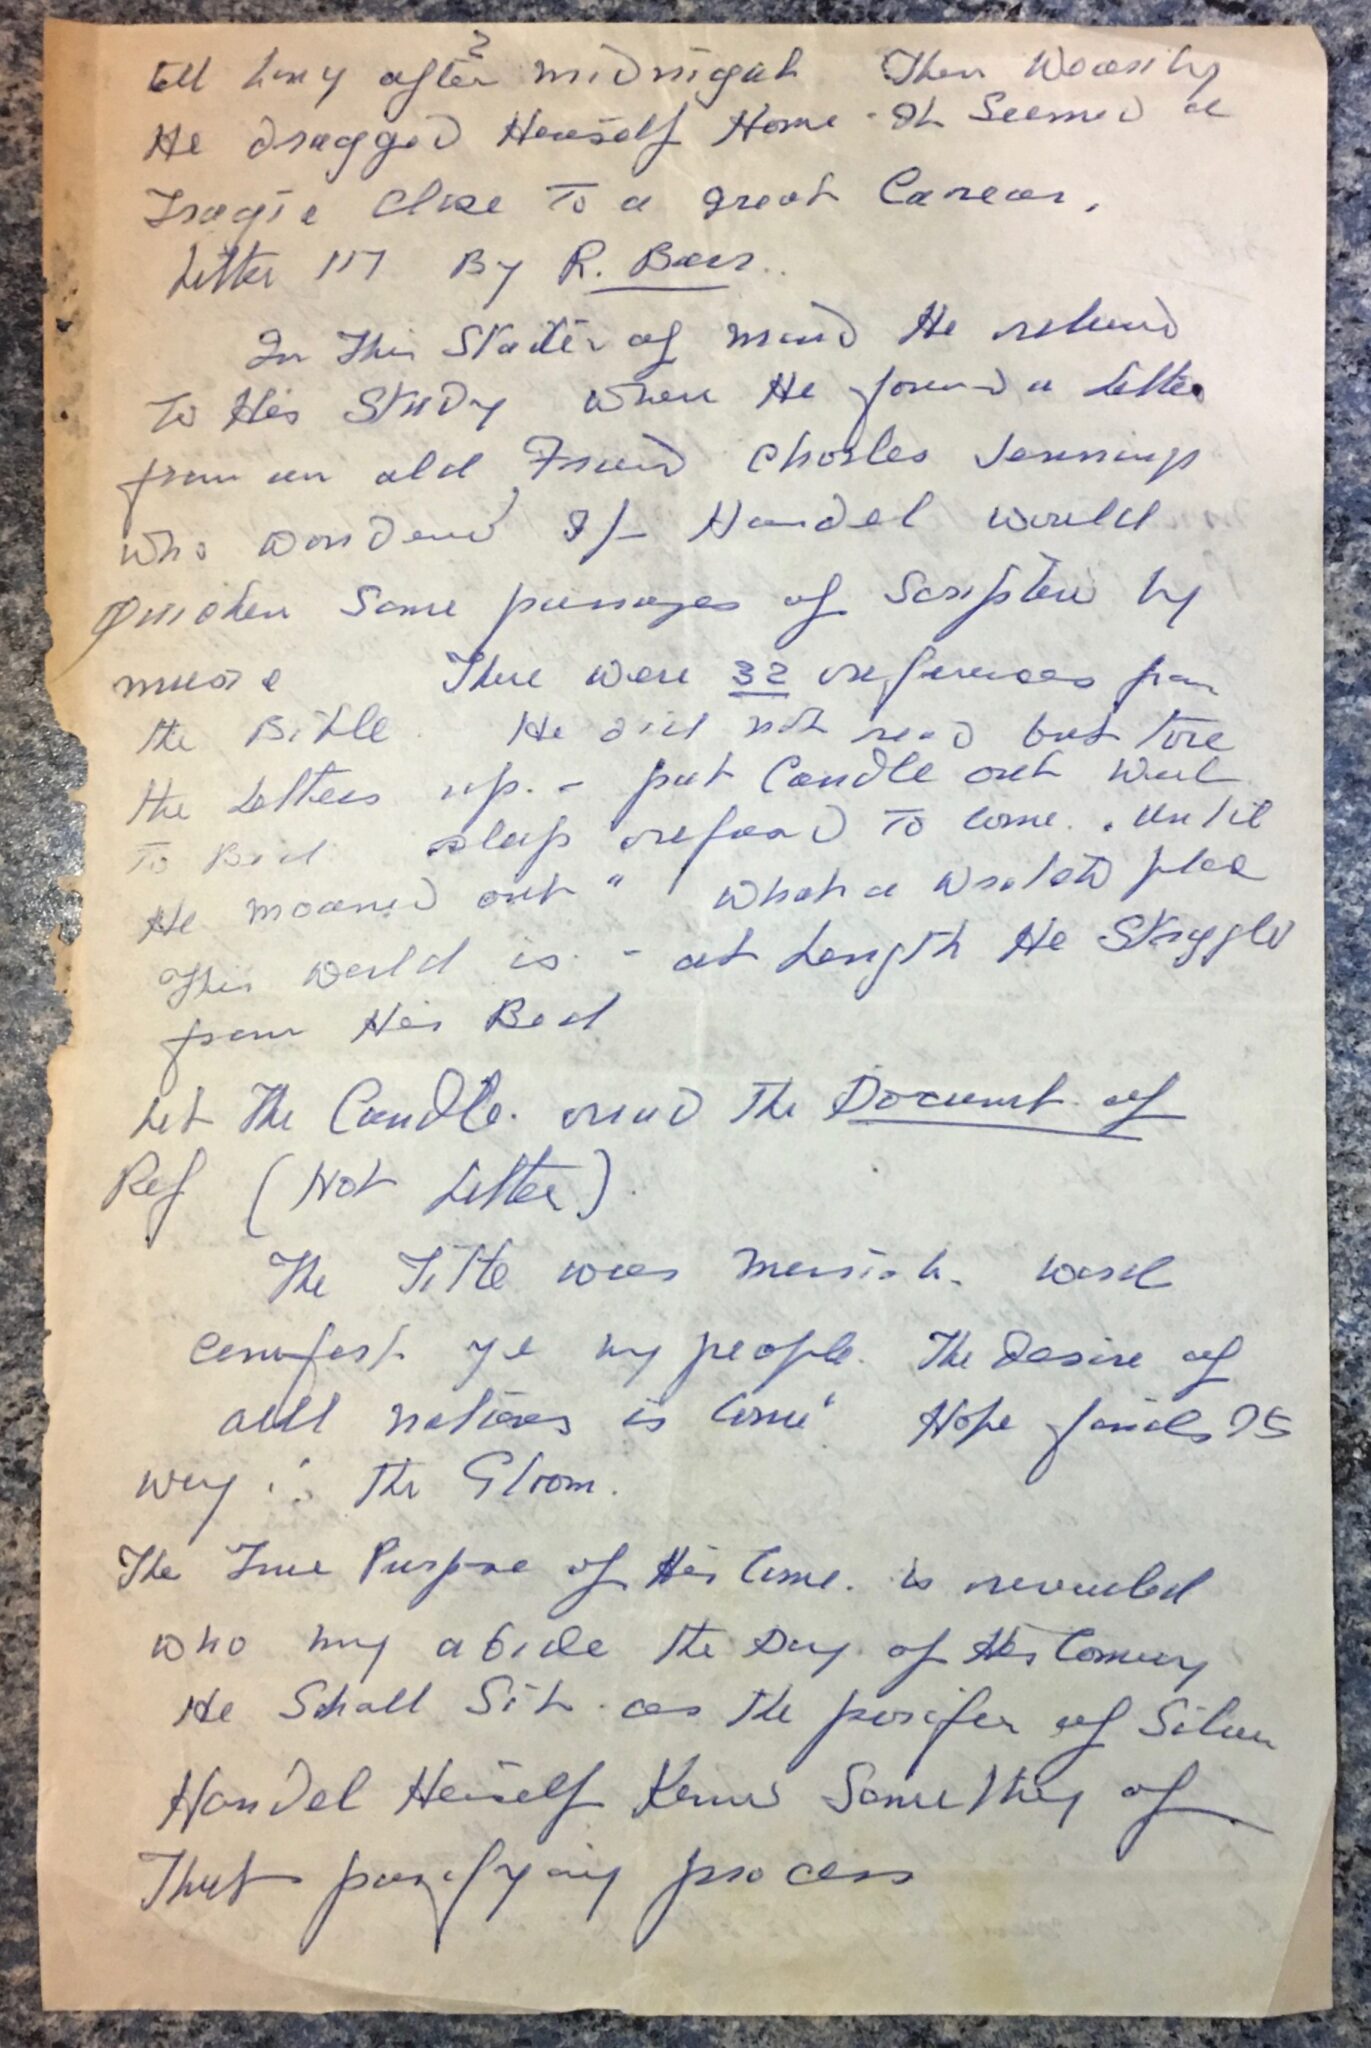 2
till long after midnight Then Wearily
He dragged Himself Home - It Seemed a
Tragic Close To a great Career.
Letter 117 By R. Baer.
In This State of mind He returned
To His Study when He found a Letter
from an old Friend Charles Jennings
who wondered If Handel would
Quicken Some passages of Scripture by
music There were 32 references from
the Bible. He did not read but tore
the Letters up. - put Candle out went
To Bed sleep refused To Come. until
He moaned out " what a wretched place
This world is. - at Length He Struggled
from His Bed
Let The Candle. read The Document of
Ref (Not Letter)
The Title was Messiah. Word
comfort ye my people. The Desire of
all nations is Come" Hope finds
way in the Gloom.
The True Purpose of His Come. is revealed
who may abide the Day of His Coming
He Shall Sit as the purifier of Silver
Handel Himself Knew Something of
That purifying process